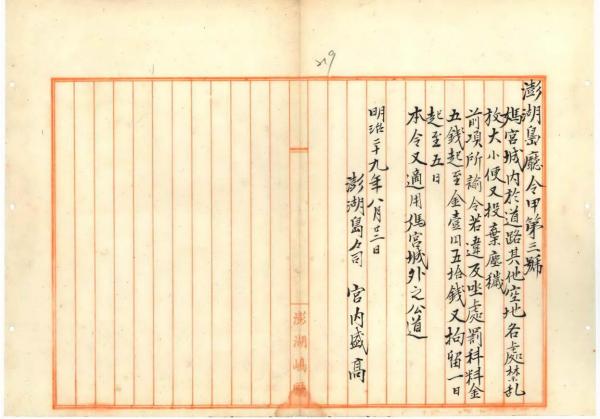 219
澎湖島廳令甲第三號
媽宮城内於道路其他空地各處禁乱
放大小便又投棄塵穢
前項所諭令若違反坐處罰科料金
五錢起至金壹円五拾錢又拘留一日
起至五日
本令又適用媽宮城外之公道
明治二十九年八月廿二日
澎湖島々司 宮内盛高
澎湖嶋廳